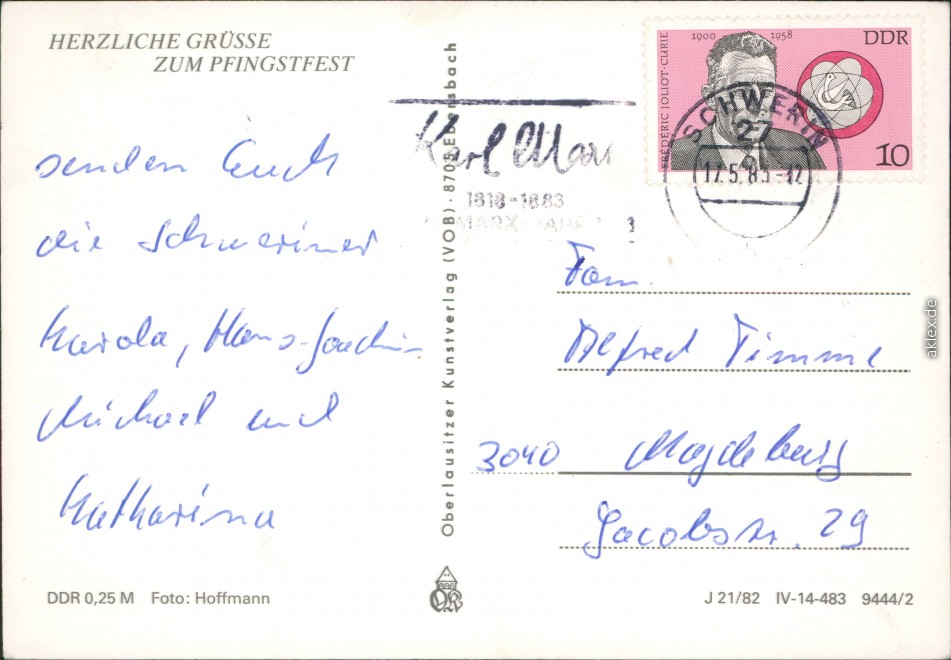 HERZLICHE GRÜSSE
ZUM PFINGSTFEST
senden Euch
die Schweriner
Karola, Hans-Joachim
Michael und
Katharina
DDR 0,25 M Foto: Hoffmann
Oberlausitzer Kunstverlag (VOB) · 8705 Ebersbach
Karl Marx
1818-1883
MARX-JAHR
FRÉDÉRIC JOLIOT-CURIE
1900 1958
DDR
10
SCHWERIN
27
17.5.83-12
Fam.
Alfred Timme
3040 Magdeburg
Jacobstr. 29
J 21/82 IV-14-483 9444/2
aklex.de